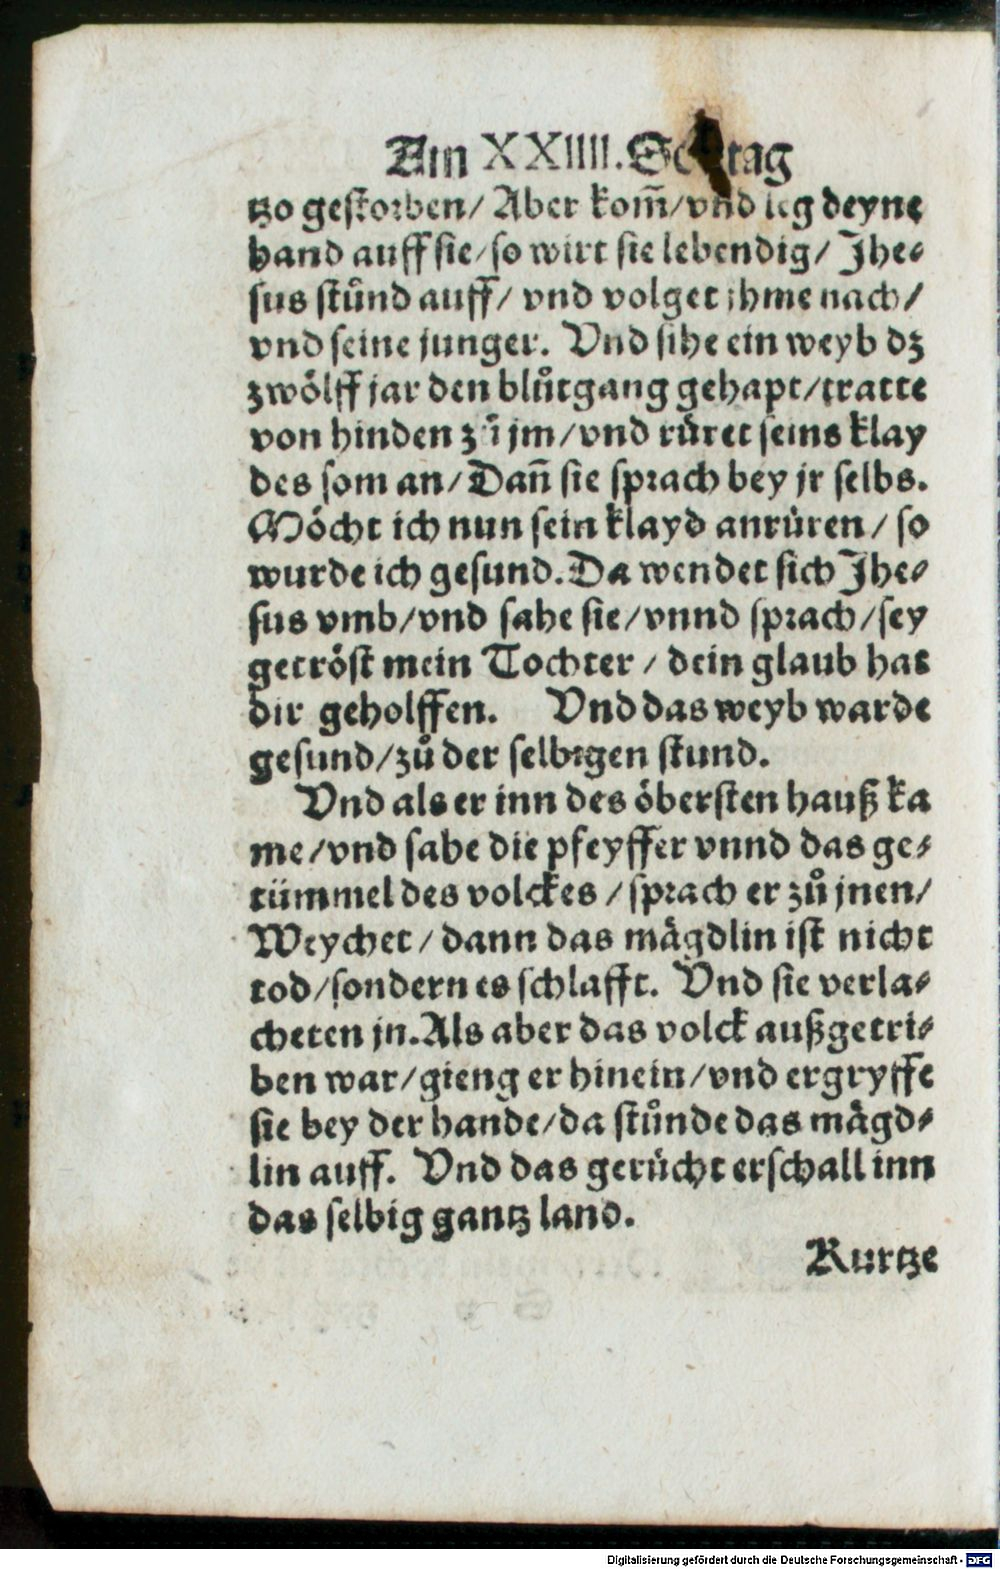 Am XXIIII. Sontag
tzo gestorben/ Aber kom̃/vnd leg deyne
hand auff sie/so wirt sie lebendig/ Jhe⸗
sus stůnd auff/ vnd volget jhme nach/
vnd seine junger. Vnd sihe ein weyb dz
zwölff jar den blůtgang gehapt/tratte
von hinden zů jm/vnd rüret seins klay
des som an/Dañ sie sprach bey jr selbs.
Möcht ich nun sein klayd anrüren/ so
wurde ich gesund. Da wendet sich Jhe⸗
sus vmb/vnd sahe sie/vnnd sprach/sey
getröst mein Tochter/ dein glaub hat
dir geholffen. Vnd das weyb warde
gesund/zů der selbigen stund.
Vnd als er inn des öbersten hauß ka
me/vnd sahe die pfeyffer vnnd das ge⸗
tümmel des volckes/sprach er zů jnen/
Weychet/ dann das mägdlin ist nicht
tod/sondern es schlafft. Vnd sie verla⸗
cheten jn. Als aber das volck außgetri⸗
ben war/gieng er hinein/vnd ergryffe
sie bey der hande/da stůnde das mägd⸗
lin auff. Vnd das gerücht erschall inn
das selbig gantz land.
Kurtze
Digitalisierung gefördert durch die Deutsche Forschungsgemeinschaft - DFG